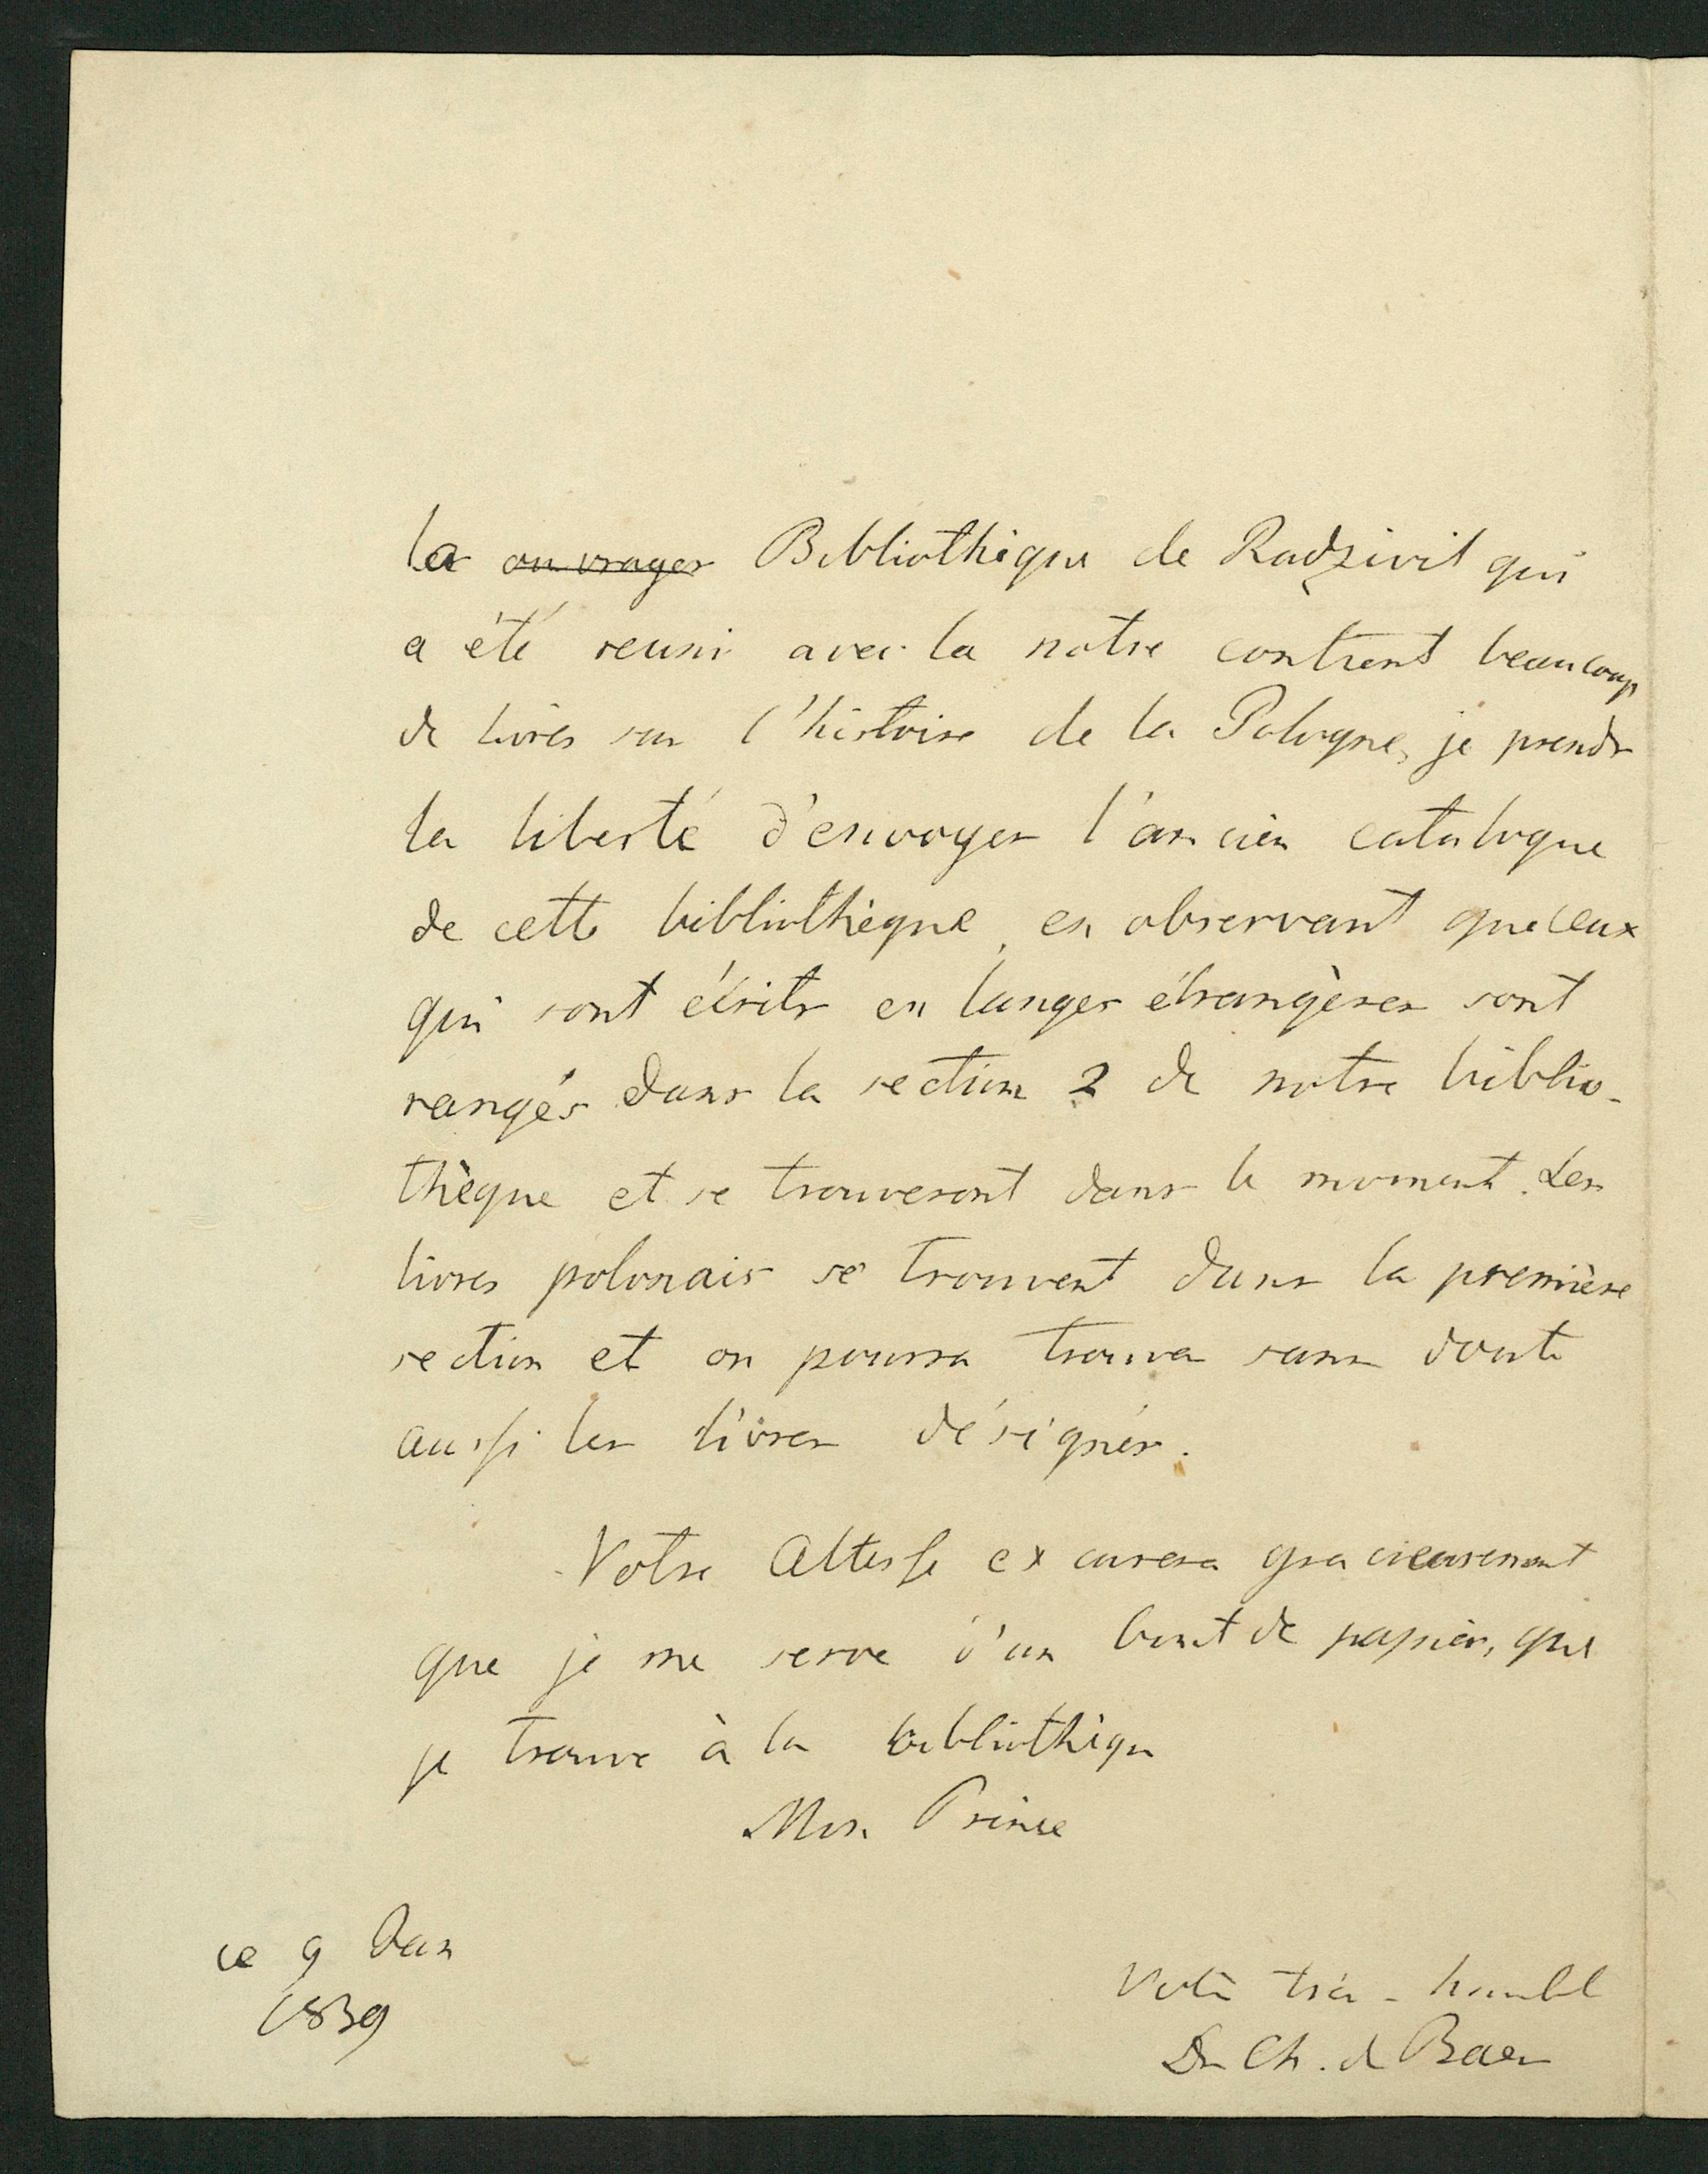 la ouvrages Bibliothèque de Radzivil qui
a été reuni avec la notre contient beaucoup
de livres sur l'histoire de la Pologne, je prends
la liberté d'envoyer l'ancien catalogue
de cette bibliothèque, en observant que ceux
qui sont écrits en langes étrangères sont
rangés dans la section 2 de notre biblio-
thèque et se trouveront dans le moment. Les
livres polonais se trouvent dans la première
section et on pourra trouver sans doute
aussi les livres désignés.
Votre Altesse excusera gracieusement
que je me serve d'un bout de papier, que
je trouve à la bibliothèque
Mon Prince
ce 9 Jan
1839
Votre très-humbl
Dr Ch. d Baer